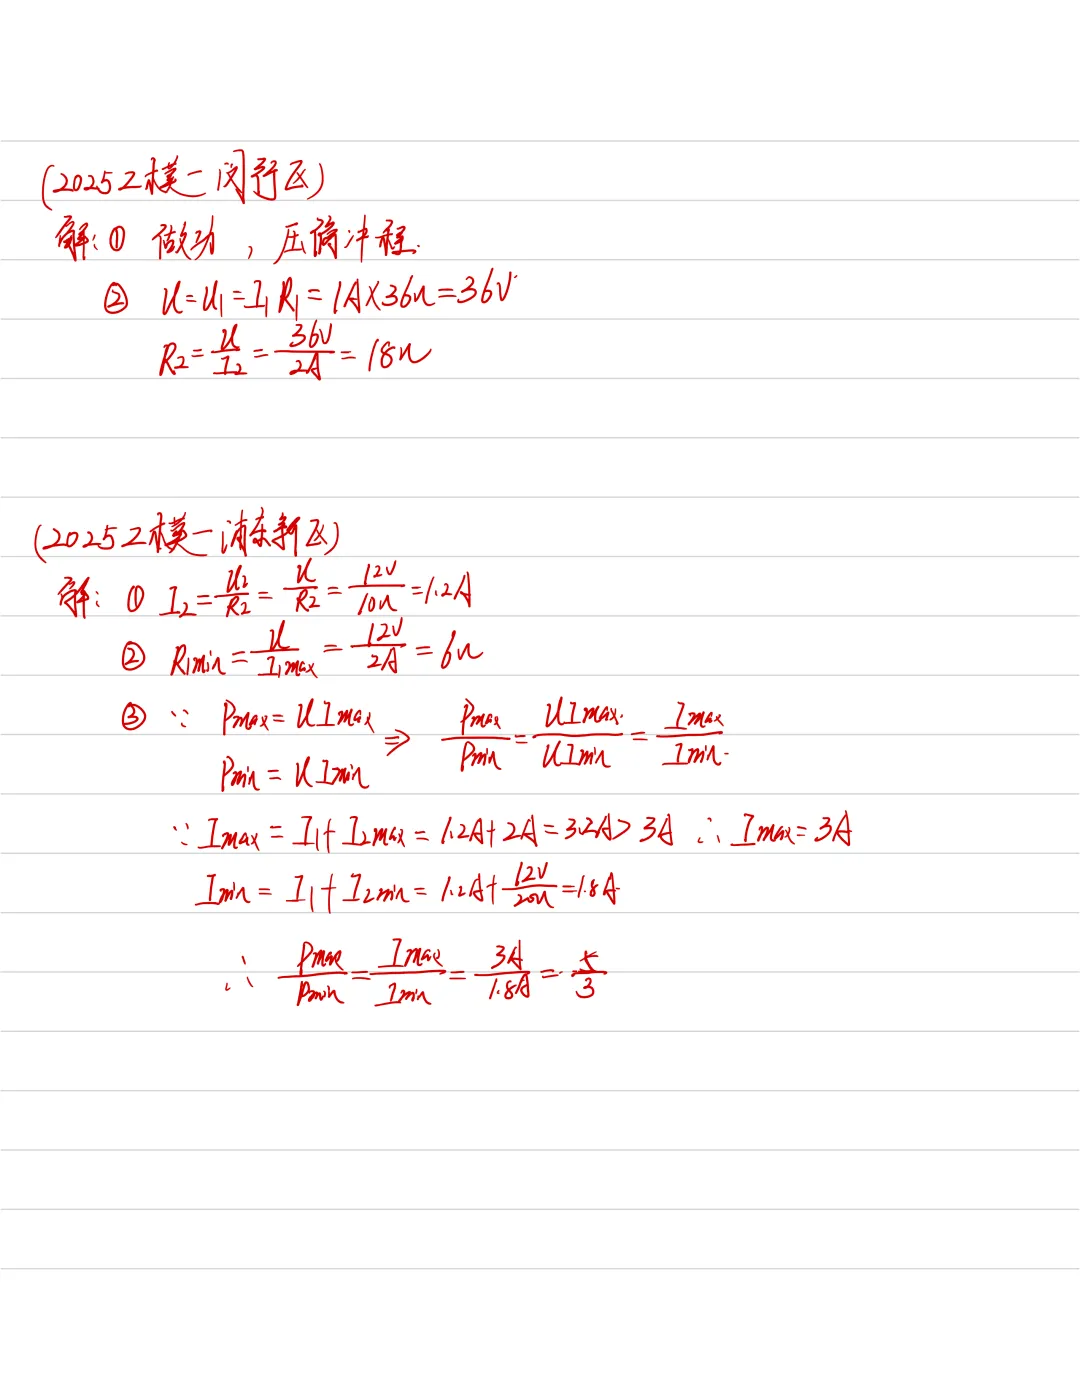 (2025二模一闵行区)
解:① 做功,压缩冲程.
② U=U₁=I₁R₁=1A×36Ω=36V
R₂=U/I₂=36V/2A=18Ω
(2025二模一浦东新区)
解:① I₂=U₂/R₂=U/R₂=12V/10Ω=1.2A
② R₁min=U/I₁max=12V/2A=6Ω
③ ∵ Pmax=UImax ⇒ Pmax/Pmin=UImax/UImin=Imax/Imin.
Pmin=UImin
∵ Imax=I₁+I₂max=1.2A+2A=3.2A>3A ∴ Imax=3A
Imin=I₁+I₂min=1.2A+12V/20Ω=1.8A
∴ Pmax/Pmin=Imax/Imin=3A/1.8A=5/3